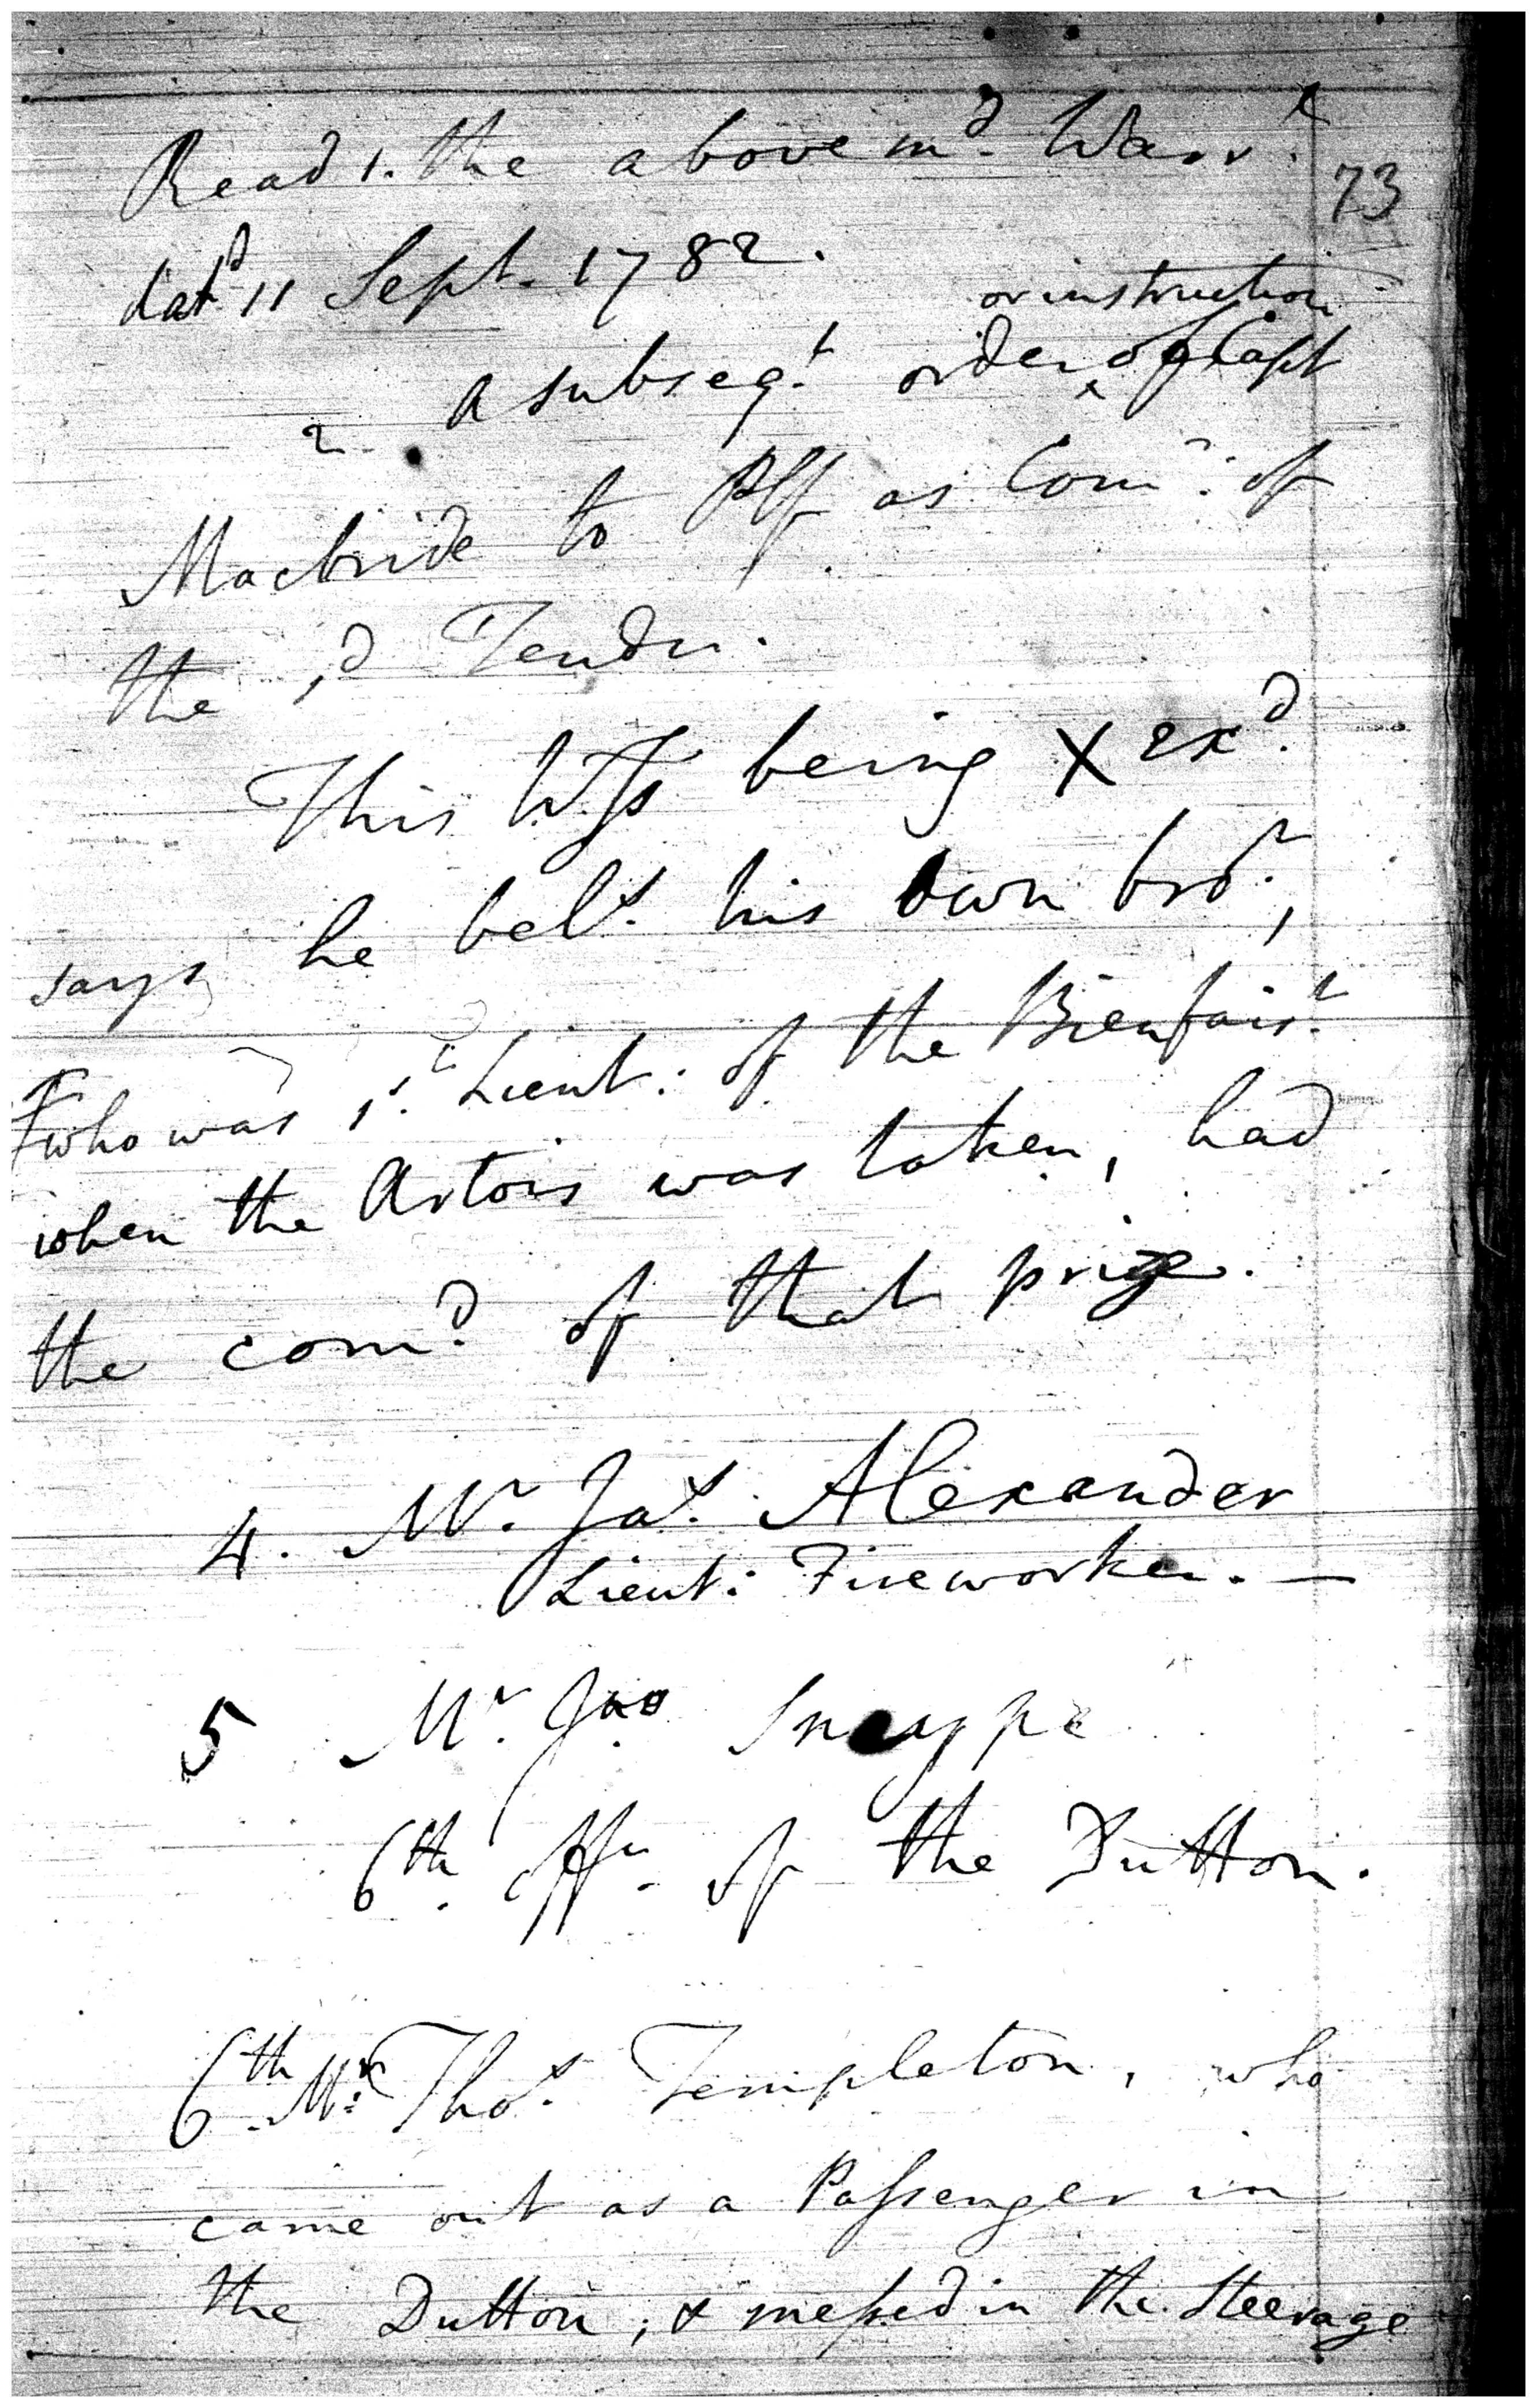 Read 1. the above m^d. Warr^t.
73
dat^d 11 Sept. 1782.
or instruction
2. a subseq^t. order ^ of Capt
Macbride to Plf. as Com^r. of
the s^d Tender.
This W^ss being X ex^d.
says he bel^s. his own bro^r.,
who was 1^st. Lieut: of the Bienfais^t.
when the Artois was taken, had
the com^d. of that prize.
4. M^r. Ja^s. Alexander
Lieut: Fireworker. —
5 M^r. Jno
6^th. off^r. of the Dutton.
6^th. M^r. Tho^s. Templeton, who
came out as a Passenger in
the Dutton, & messed in the Steerage